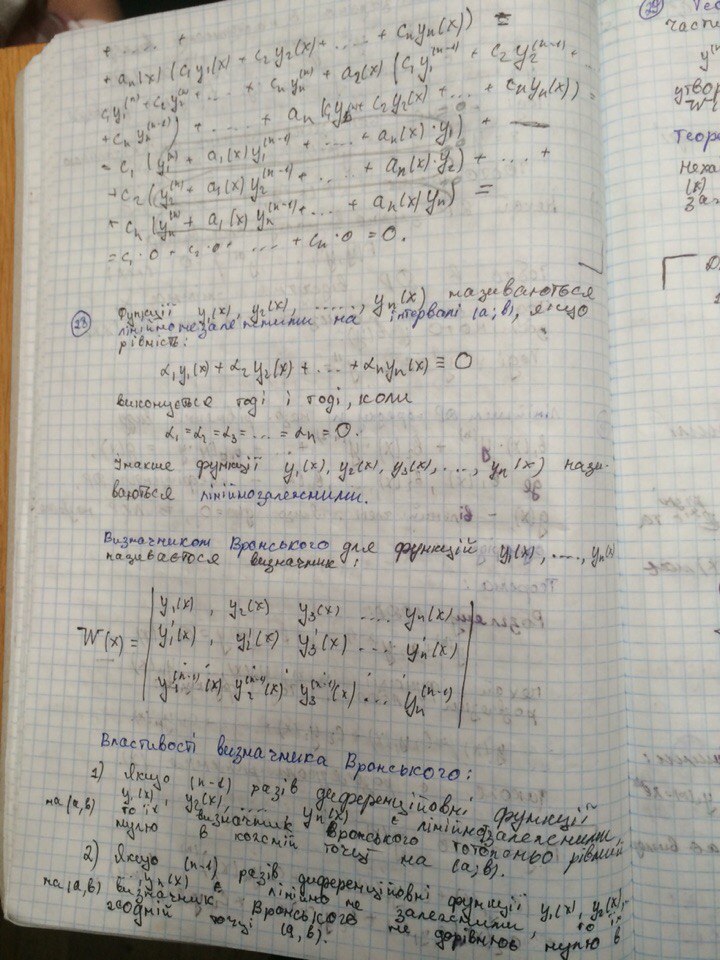 + ..... +
+ aₙ(x) (c₁y₁(x) + c₂y₂(x) + .... + cₙyₙ(x)) =
c₁y₁⁽ⁿ⁾ + c₂y₂⁽ⁿ⁾ + ... + cₙyₙ⁽ⁿ⁾ + a₂(x) (c₁y₁⁽ⁿ⁻¹⁾ + c₂y₂⁽ⁿ⁻¹⁾ + ...
+ cₙyₙ⁽ⁿ⁻¹⁾) + ..... + aₙ (c₁y₁ + c₂y₂(x) + ... + cₙyₙ(x)) =
= c₁ (y₁⁽ⁿ⁾ + a₁(x)y₁⁽ⁿ⁻¹⁾ + ... + aₙ(x)·y₁) +
+ c₂ (y₂⁽ⁿ⁾ + a₁(x)y₂⁽ⁿ⁻¹⁾ + ... + aₙ(x)·y₂) + ... +
+ cₙ (yₙ⁽ⁿ⁾ + a₁(x)yₙ⁽ⁿ⁻¹⁾ + ... + aₙ(x)yₙ) =
= c₁·0 + c₂·0 + .... + cₙ·0 = 0.
23 Функції y₁(x), y₂(x), ......, yₙ(x) називаються
лінійнонезалежними на інтервалі (a;b), якщо
рівність:
α₁y₁(x) + α₂y₂(x) + ... + αₙyₙ(x) ≡ 0
виконується тоді і тоді, коли
α₁ = α₂ = α₃ = ... = αₙ = 0.
Інакше функції y₁(x), y₂(x), y₃(x), ..., yₙ(x) нази-
ваються лінійнозалежними.
Визначником Вронського для функцій y₁(x), ...., yₙ(x)
називається визначник:
y₁(x), y₂(x) y₃(x) .... yₙ(x)
W(x) = y₁'(x), y₂'(x) y₃'(x) ... yₙ'(x)
y₁⁽ⁿ⁻¹⁾(x) y₂⁽ⁿ⁻¹⁾(x) y₃⁽ⁿ⁻¹⁾(x) ... yₙ⁽ⁿ⁻¹⁾
Властивості визначника Вронського:
1) Якщо (n-1) разів диференційовні функції
y₁(x), y₂(x), ..... yₙ(x) є лінійнозалежними,
на (a,b) то їх визначник Вронського тотожньо рівний
нулю в кожній точці на (a;b).
2) Якщо (n-1) разів диференційовні функції y₁(x), y₂(x),
... yₙ(x) є лінійно не залежними, то їх
на (a,b) визначник Вронського не дорівнює нулю в
жодній точці (a,b).
29